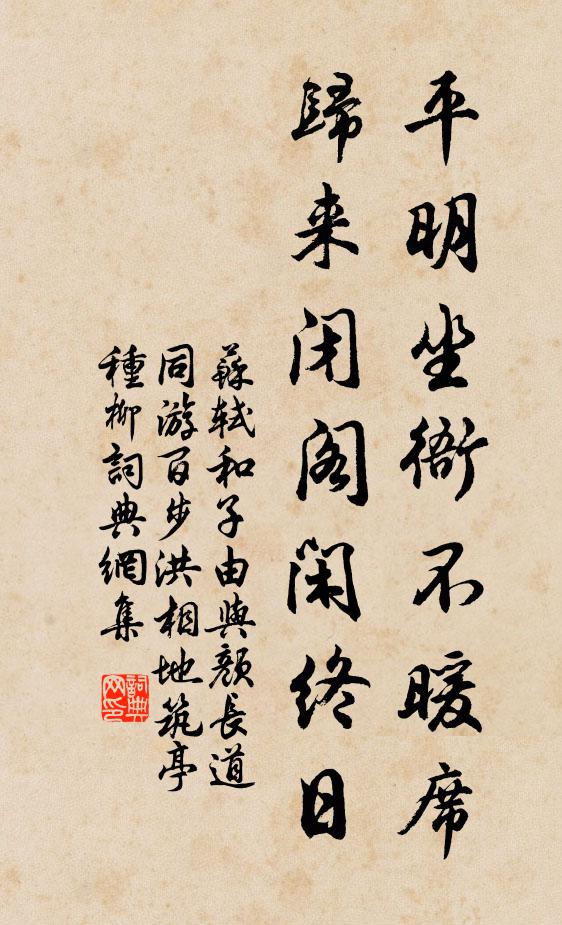 平明坐衙不暖席
歸来闭阁閑終日
蘇軾和子由與顏長道
同游百步洪相地筑亭
種柳詞典網集
詞典
网印